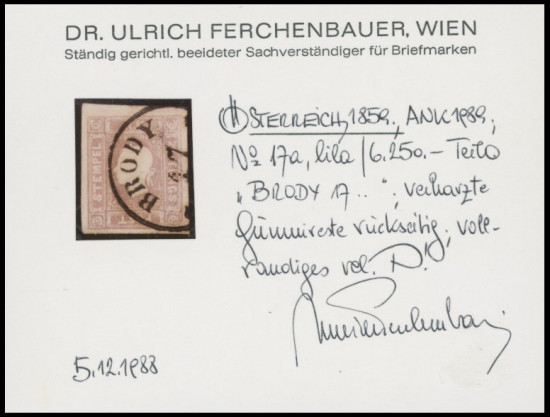 DR. ULRICH FERCHENBAUER, WIEN
Ständig gerichtl. beeideter Sachverständiger für Briefmarken
ÖSTERREICH, 1859, ANK 1989,
No 17a, lila / 6.250.– Teilo
"BRODY 17..", verharzte
Gummireste rückseitig, voll-
randiges
BRODY
17
STEMPEL
5.12.1988